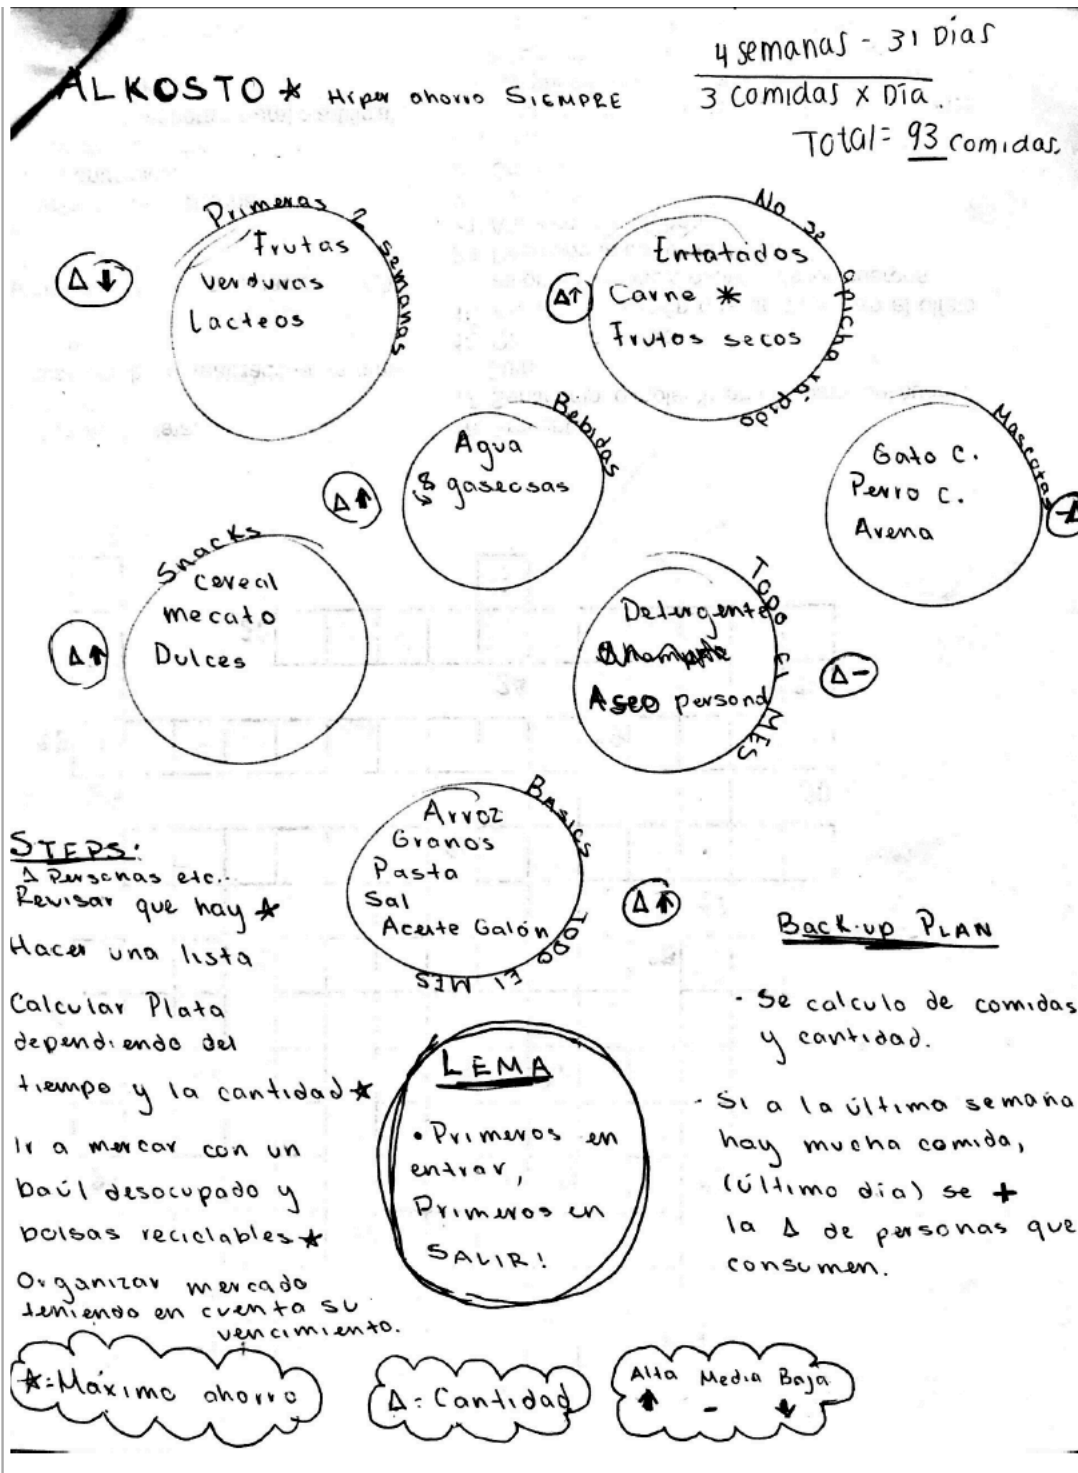 ALKOSTO ★ Hiper ahorro SIEMPRE
4 semanas - 31 Días
3 comidas x Día.
Total = 93 comidas.
Primeras 2 semanas
Δ ↓
Frutas
verduras
Lacteos
No se apicha rápido
Δ↑
Enlatados
Carne *
Frutos secos
Bebidas
Δ ↑
Agua
gaseosas
Mascotas
Gato C.
Perro C.
Avena
-Δ
Snacks
Δ ↑
cereal
mecato
Dulces
TODO El MES
Detergente
Aseo personal
Δ-
BASICS TODO El MES
Arroz
Granos
Pasta
Sal
Aceite Galón
Δ ↑
STEPS:
Δ Personas etc...
Revisar que hay ★
Hacer una lista
Calcular Plata
dependiendo del
tiempo y la cantidad ★
Ir a mercar con un
baúl desocupado y
bolsas reciclables ★
Organizar mercado
teniendo en cuenta su
vencimiento.
LEMA
• Primeros en
entrar,
Primeros en
SALIR!
Back-up PLAN
- Se calculo de comidas
y cantidad.
- Si a la última semana
hay mucha comida,
(último día) se +
la Δ de personas que
consumen.
★=Máximo ahorro
Δ = Cantidad
Alta Media Baja
↑ - ↓